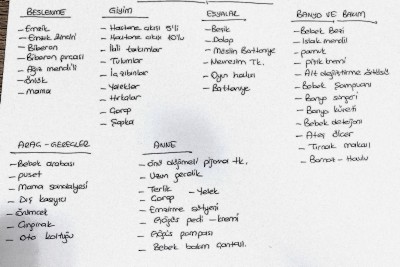 BESLENME
- Emzik
- Emzik zinciri
- Biberon
- Biberon fırçası
- Ağız mendili
- Önlük
- Mama
GİYİM
- Hastane çıkışı 5'li
- Hastane çıkışı 10'lu
- İkili takımlar
- Tulumlar
- İç zıbınlar
- Yelekler
- Hırkalar
- Çorap
- Şapka
EŞYALAR
- Beşik
- Dolap
- Müslin Battaniye
- Nevresim Tk.
- Oyun halısı
- Battaniye
BANYO VE BAKIM
- Bebek Bezi
- Islak mendil
- pamuk
- pişik kremi
- Alt değiştirme örtüsü
- Bebek Şampuanı
- Banyo süngeri
- Banyo küveti
- Bebek deterjanı
- Ateş ölçer
- Tırnak makası
- Bornoz - Havlu
ARAÇ - GEREÇLER
- Bebek arabası
- puset
- Mama sandalyesi
- Diş kaşıyıcı
- Çıngırak
- Oto koltuğu
ANNE
- Önü düğmeli pijama tk.
- Uzun gecelik
- Terlik - Yelek
- Çorap
- Emzirme sütyeni
- Göğüs pedi - kremi
- Göğüs pompası
- Bebek bakım çantası.